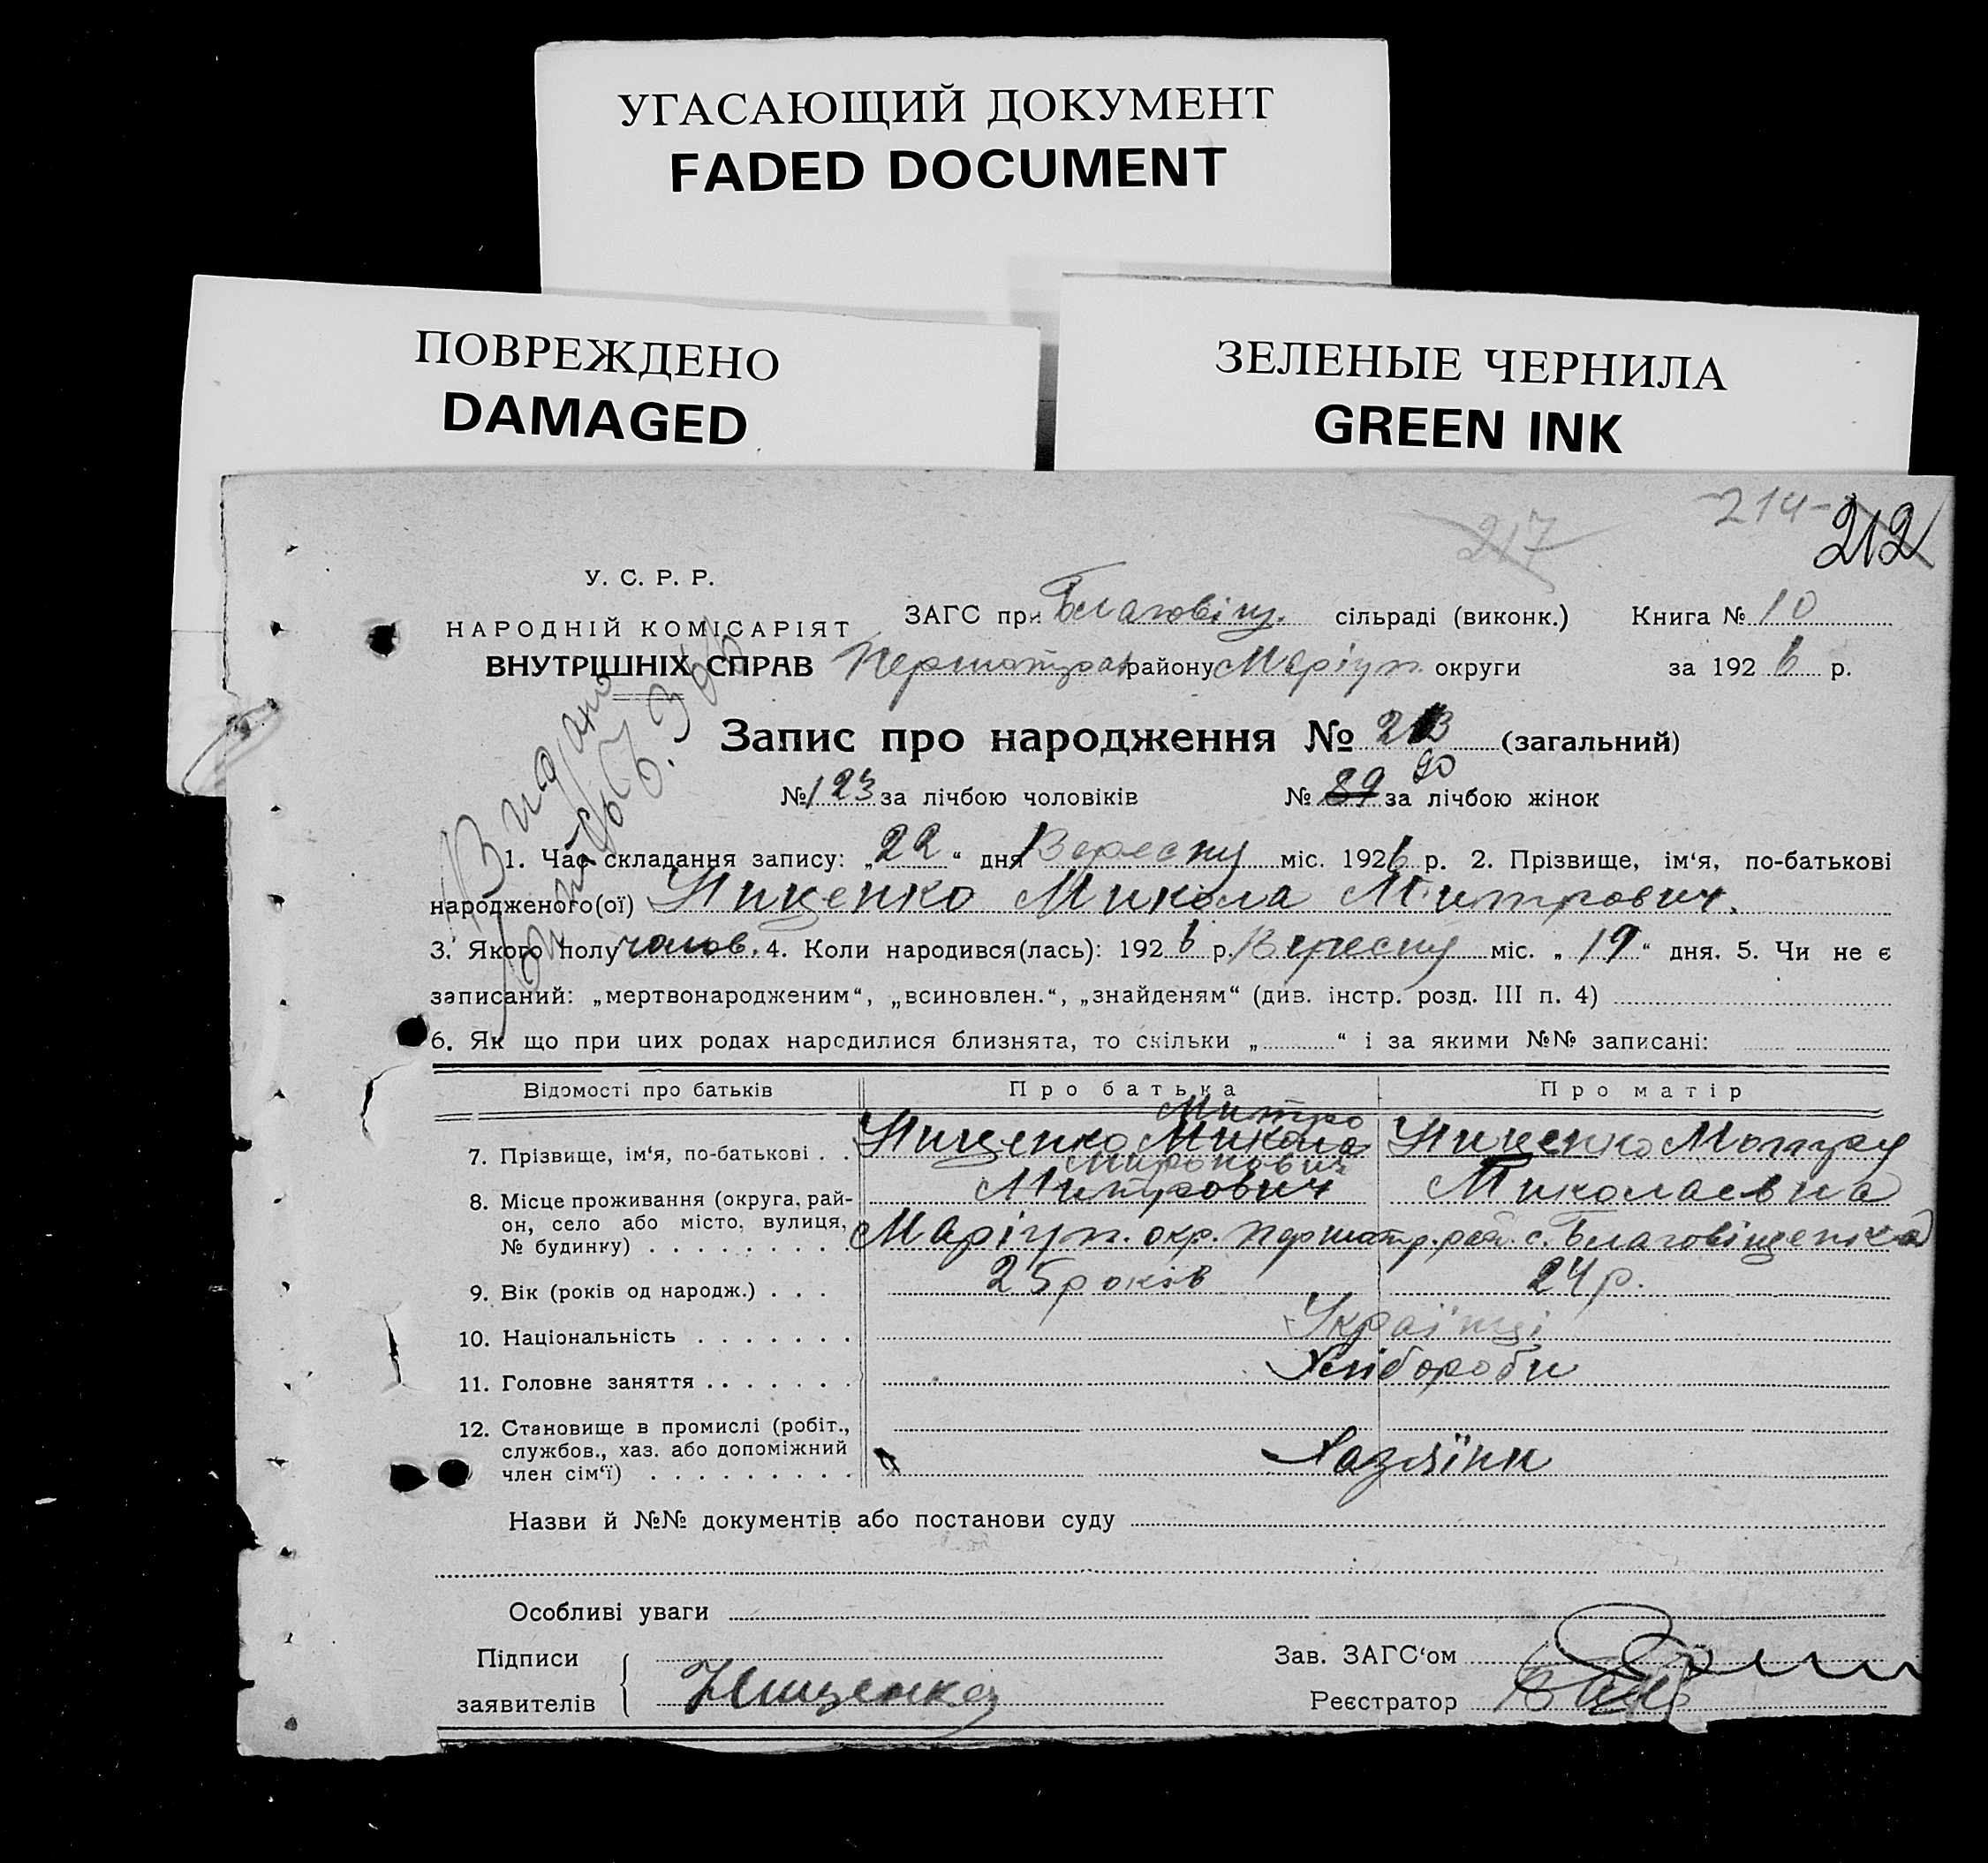 УГАСАЮЩИЙ ДОКУМЕНТ
FADED DOCUMENT
ПОВРЕЖДЕНО
DAMAGED
ЗЕЛЕНЫЕ ЧЕРНИЛА
GREEN INK
217
214
212
У. С. Р. Р.
НАРОДНІЙ КОМІСАРІЯТ
ВНУТРІШНІХ СПРАВ
ЗАГС при Благовіщ. сільраді (виконк.) Книга № 10
Першотрав району Маріуп. округи за 1926 р.
Видано
Запис про народження № 213 (загальний)
90
№ 123 за лічбою чоловіків № 89 за лічбою жінок
1. Час складання запису: „22“ дня Вересну міс. 1926 р. 2. Прізвище, ім‘я, по-батькові
народженого(ої) Нищенко Микола Митрович.
3. Якого полу чолов. 4. Коли народився(лась): 1926 р. Вересну міс. „19“ дня. 5. Чи не є
записаний: „мертвонародженим“, „всиновлен.“, „знайденям“ (див. інстр. розд. III п. 4)
6. Як що при цих родах народилися близнята, то скільки „ “ і за якими №№ записані:
Відомості про батьків Про батька Про матір
Митро
7. Прізвище, ім‘я, по-батькові . . Нищенко Микола Нищенко Мотря
Миронович
Митрович Миколаевна
8. Місце проживання (округа, рай-
он, село або місто, вулиця,
№ будинку) . . . . . . . . . Маріуп. окр. Першотр. рай. с. Благовіщенка
9. Вік (років од народж.) . . . 25 років 24 р.
10. Національність . . . . . . . Українці
11. Головне заняття . . . . . . . Хлібороби
12. Становище в промислі (робіт.,
службов., хаз. або допоміжний
член сім‘ї) . . . . . . . . . Хазяїни
Назви й №№ документів або постанови суду
Особливі уваги
Підписи
заявителів Нищенко
Зав. ЗАГС‘ом
Реєстратор